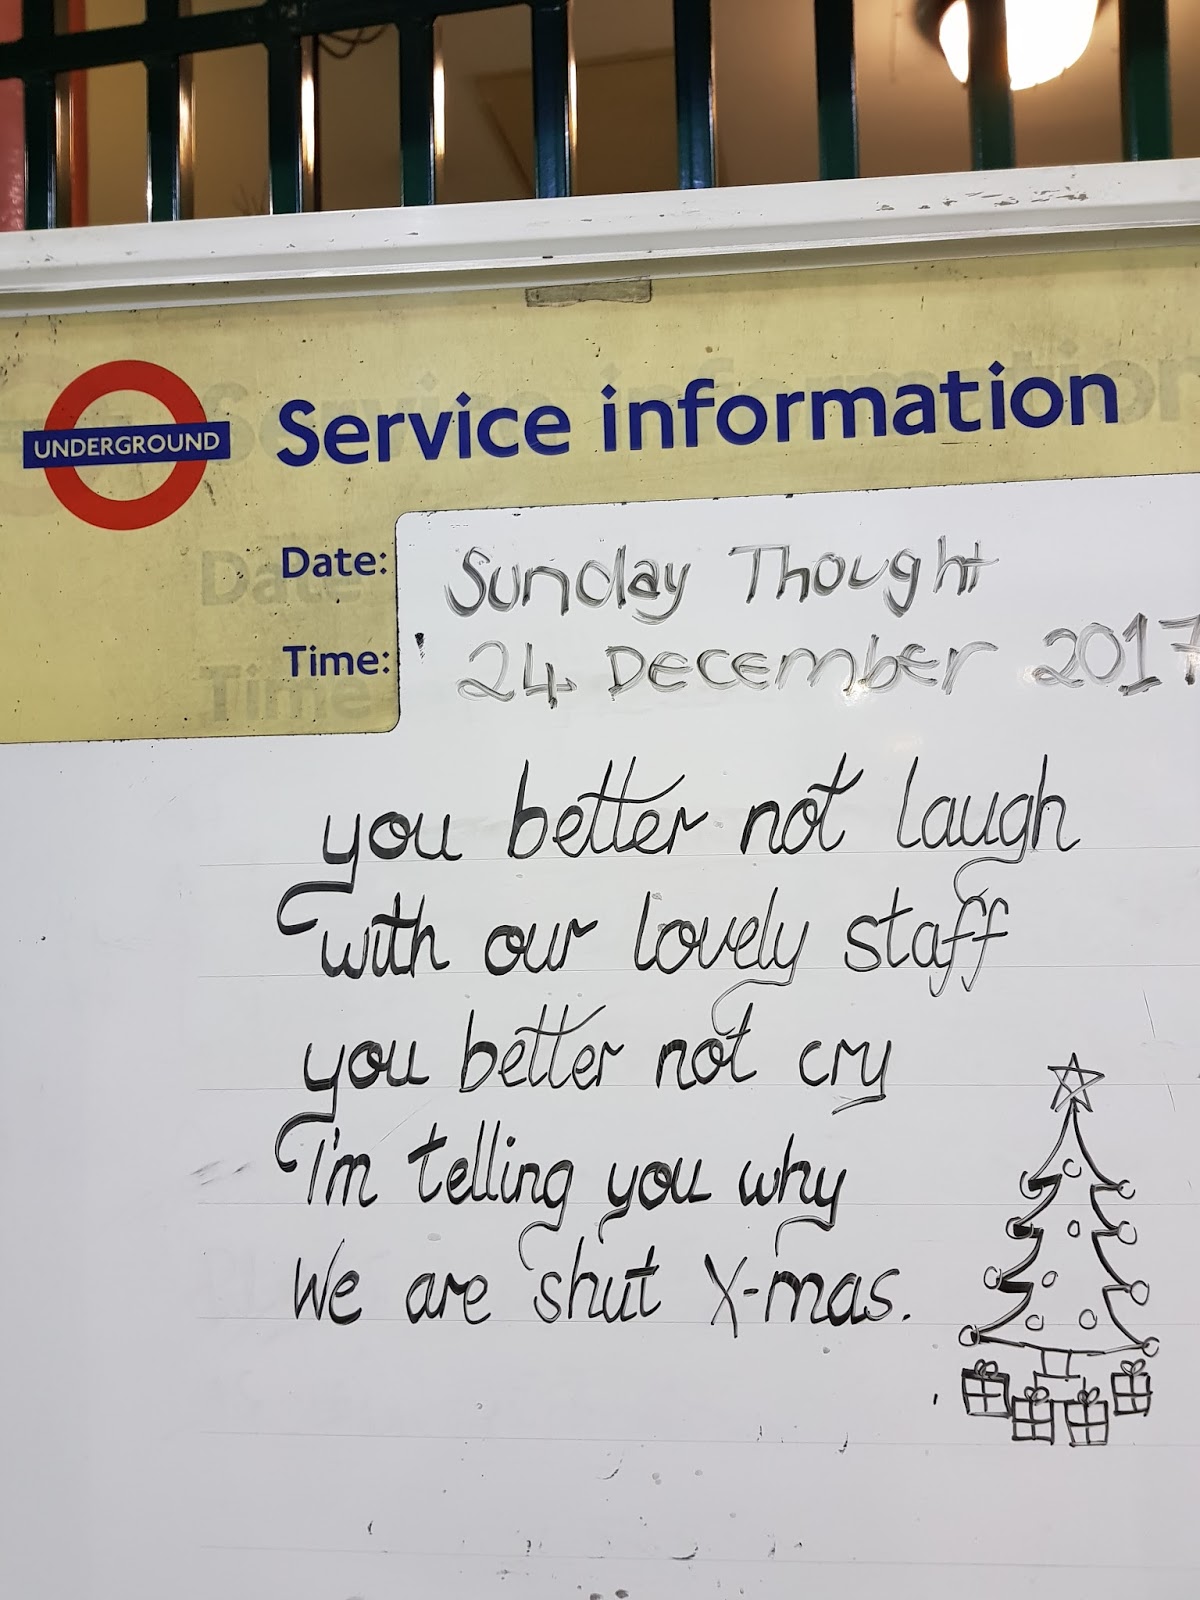 UNDERGROUND
Service information
Date: Sunday Thought
Time: 24 December 2017
you better not laugh
with our lovely staff
you better not cry
I'm telling you why
We are shut X-mas.